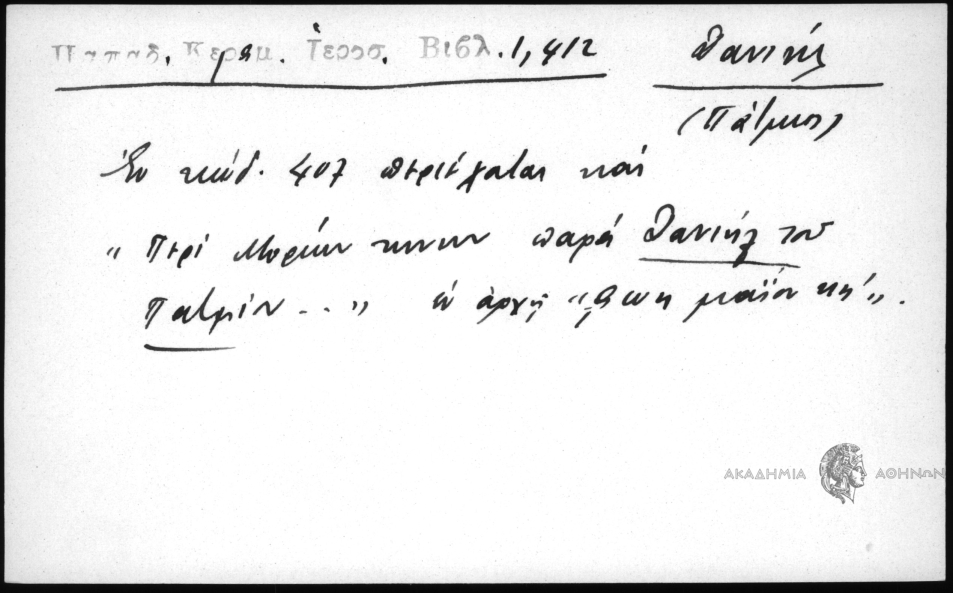 Παπαδ. Κεραμ. Ἱεροσ. Βιβλ. 1, 412
Δανιήλ
(Πάτμου)
Ἐν κώδ. 407 περιέχεται καὶ
" Περὶ μυρίων τινων παρὰ Δανιήλ τοῦ
Πατμίου ... " ἐν ἀρχῇ " μαΐου κη' ".
ΑΚΑΔΗΜΙΑ ΑΘΗΝΩΝ